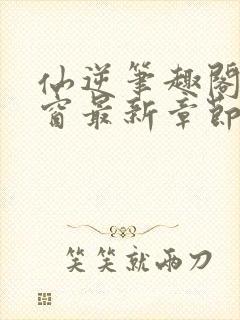 仙逆笔趣阁
窗最新章節
笑笑就两刀